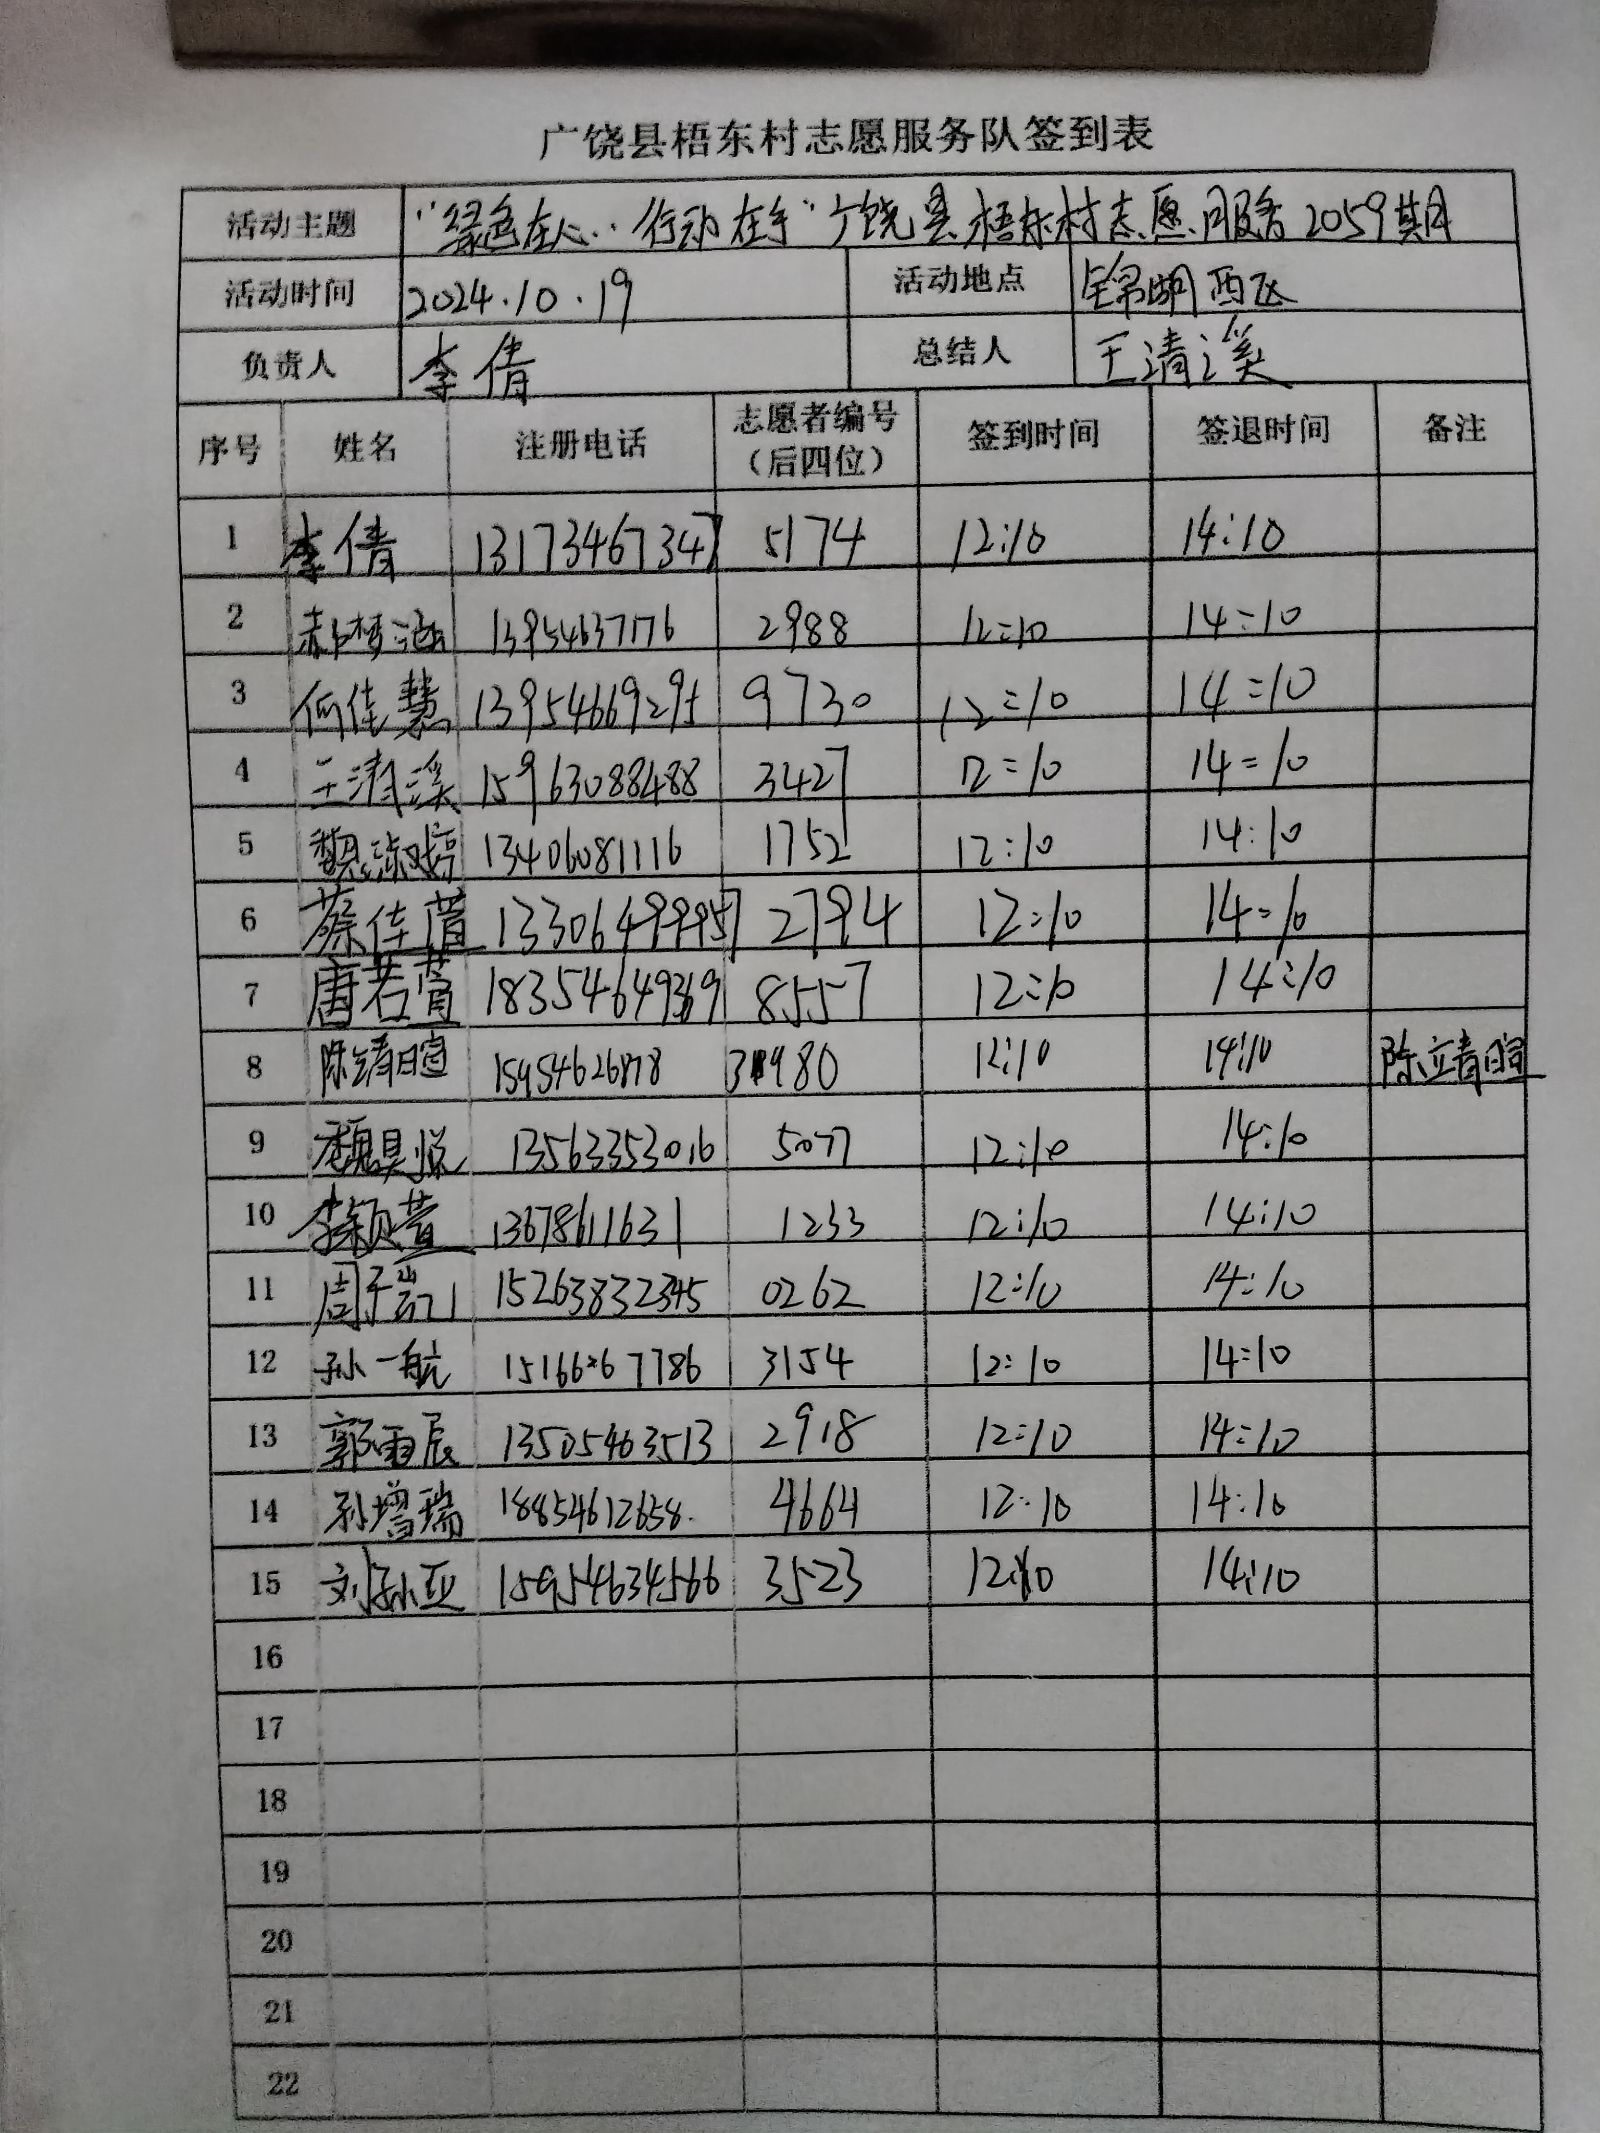 广饶县梧东村志愿服务队签到表
活动主题 "绿色在心..行动在手"广饶县梧东村志愿服务2059期
活动时间 2024.10.19 活动地点 锦湖西区
负责人 李倩 总结人 王清溪
序号 姓名 注册电话 志愿者编号（后四位） 签到时间 签退时间 备注
1 李倩 13173467347 5174 12:10 14:10
2 郝梦涵 13954637176 2988 12:10 14:10
3 何佳慧 13954669295 9730 12:10 14:10
4 王清溪 15963088488 3427 12:10 14:10
5 魏 13406081116 1752 12:10 14:10
6 蔡佳萱 13306499957 2794 12:10 14:10
7 唐若萱 18354649369 8557 12:10 14:10
8 陈靖暄 3980 12:10 14:10 陈靖暄
9 魏昊悦 13563353016 5077 12:10 14:10
10 李颖萱 13678611631 1233 12:10 14:10
11 周子凯 15263832345 0262 12:10 14:10
12 孙一航 3154 12:10 14:10
13 郭雨辰 13505463513 2918 12:10 14:10
14 孙增瑞 18854612658 4664 12:10 14:10
15 刘孙亚 15954634566 3523 12:10 14:10
16
17
18
19
20
21
22